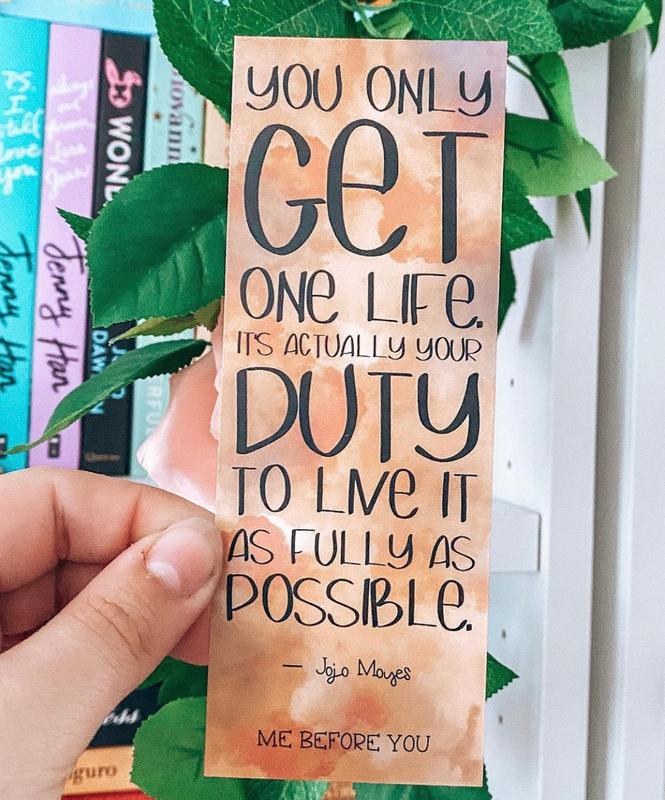 YOU ONLY
GET
ONE LIFE.
IT'S ACTUALLY YOUR
DUTY
TO LIVE IT
AS FULLY AS
POSSIBLE.
— Jojo Moyes
ME BEFORE YOU
P.S. I still love you
Jenny Han
always and forever, Lara Jean
Jenny Han
WOND
iovann
ERFU
guro